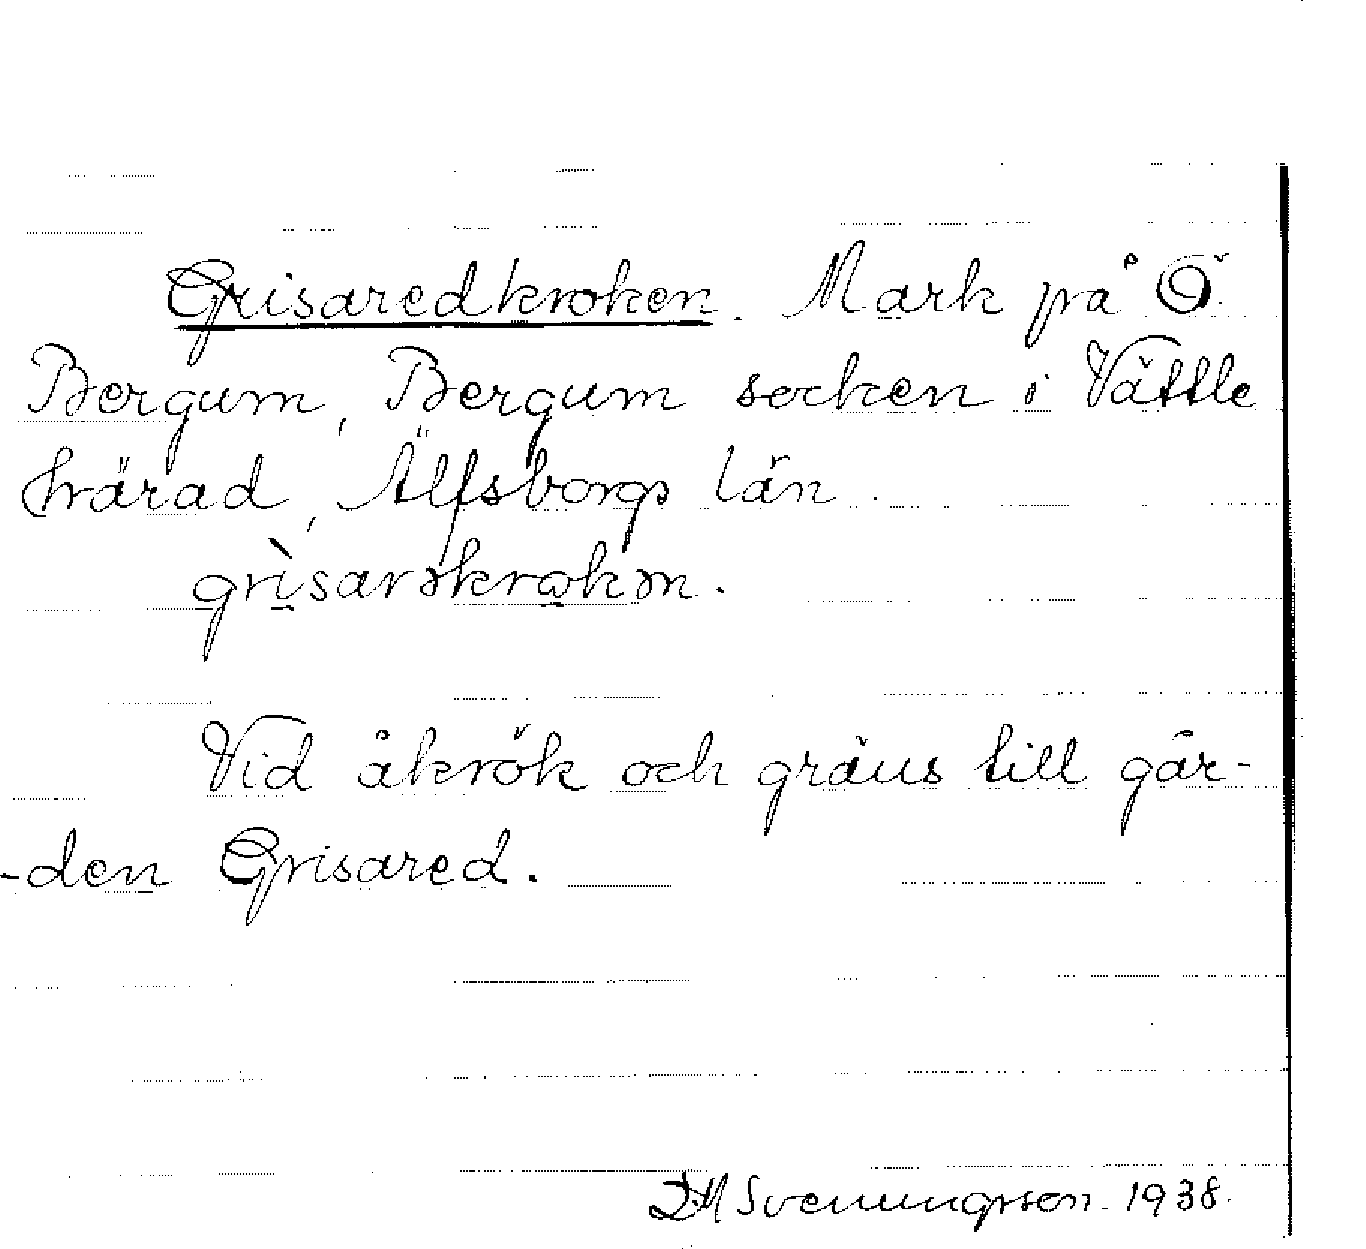 Grisaredkroken. Mark på Ö.
Bergum, Bergum socken i Vättle
härad, Älfsborgs län.
grìsarəkrokən.
Vid åkrök och gräns till går-
-den Grisared.
Svenungsson. 1938.